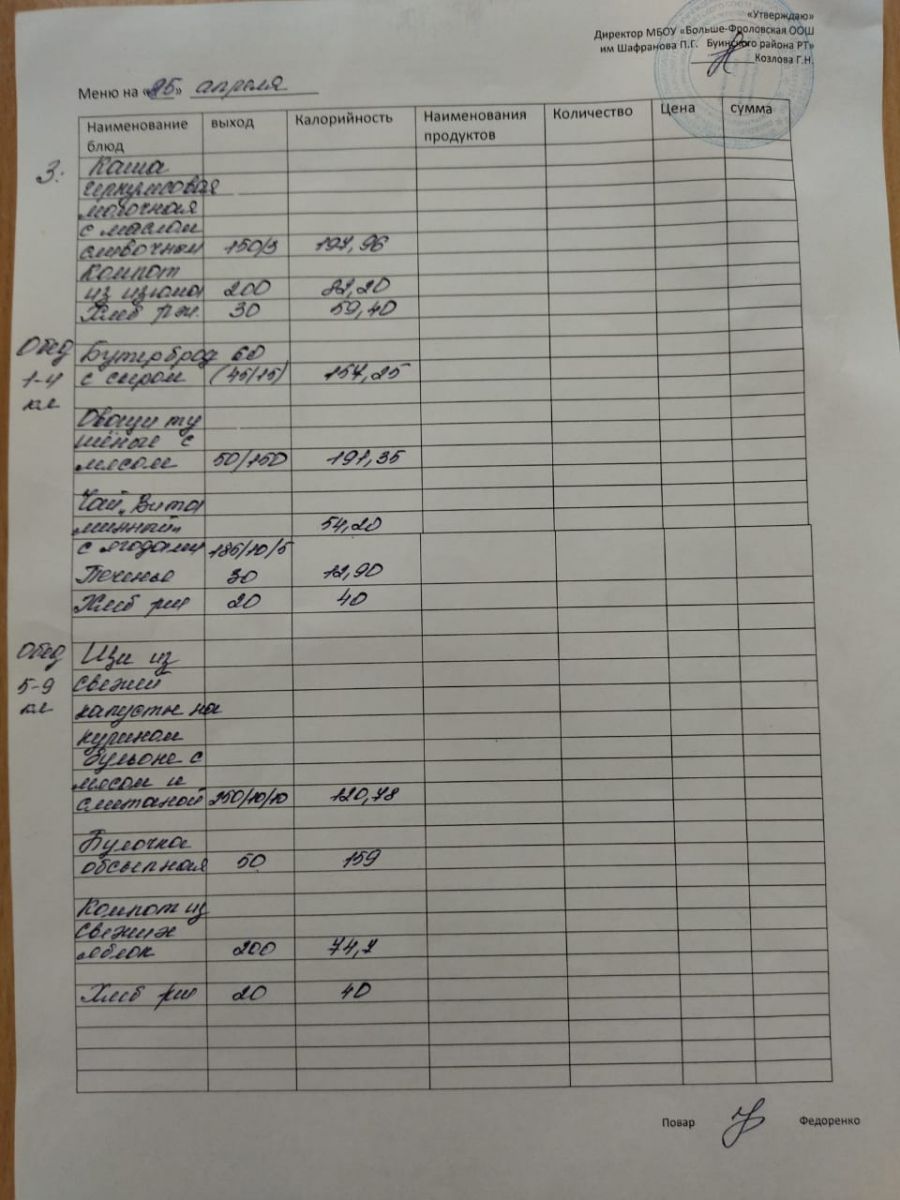 «Утверждаю»
Директор МБОУ «Больше-Фроловская ООШ
им Шафранова П.Г. Буинского района РТ»
Козлова Г.Н.
Меню на «25» апреля
Наименование блюд выход Калорийность Наименования продуктов Количество Цена сумма
З. Каша
геркулесовая
молочная
с маслом
сливочным 150/3 197,96
Компот
из изюма 200 82,20
Хлеб рж. 30 59,40
Обед Бутерброд 60
1-4 с сыром (45/15) 157,25
кл
Овощи ту
шёные с
мясом 50/150 191,35
Чай „Вита
минный" 54,20
с ягодами 185/10/5
Печенье 30 12,90
Хлеб рж 20 40
Обед Щи из
5-9 свежей
кл капусты на
курином
бульоне с
мясом и
сметаной 250/10/10 120,78
Булочка
обсыпная 50 159
Компот из
свежих
яблок 200 74,7
Хлеб рж 20 40
Повар Федоренко